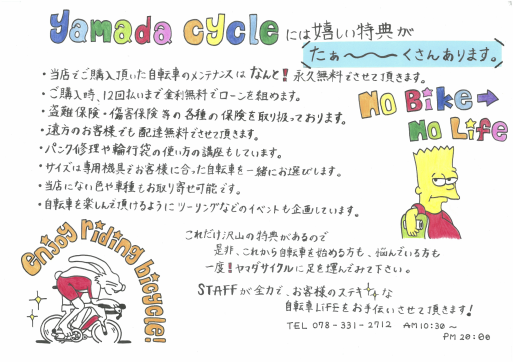 yamada cycle には嬉しい特典が
たぁ〜〜くさんあります。
・当店でご購入頂いた自転車のメンテナンスはなんと！永久無料でさせて頂きます。
・ご購入時、12回払いまで金利無料でローンを組めます。
・盗難保険・傷害保険等の各種の保険を取り扱っております。
・遠方のお客様でも配達無料でさせて頂きます。
・パンク修理や輪行袋の使い方の講座もしています。
・サイズは専用機具でお客様に合った自転車を一緒にお選びします。
・当店にない色や車種もお取り寄せ可能です。
・自転車を楽しんで頂けるようにツーリングなどのイベントも企画しています。
No Bike→
No Life
enjoy riding bicycle!
これだけ沢山の特典があるので
是非、これから自転車を始める方も、悩んでいる方も
一度！ヤマダサイクルに足を運んでみて下さい。
STAFFが全力で、お客様のステキな
自転車LiFEをお手伝いさせて頂きます！
TEL 078-331-2712 AM10:30〜
PM20:00